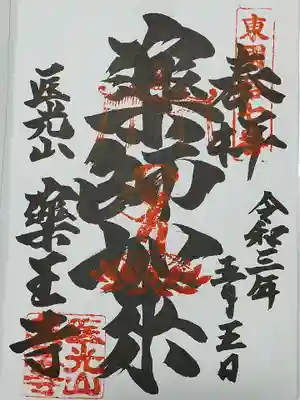 奉拝
令和三年
五月五日
薬師如来
医光山
薬王寺
医光山